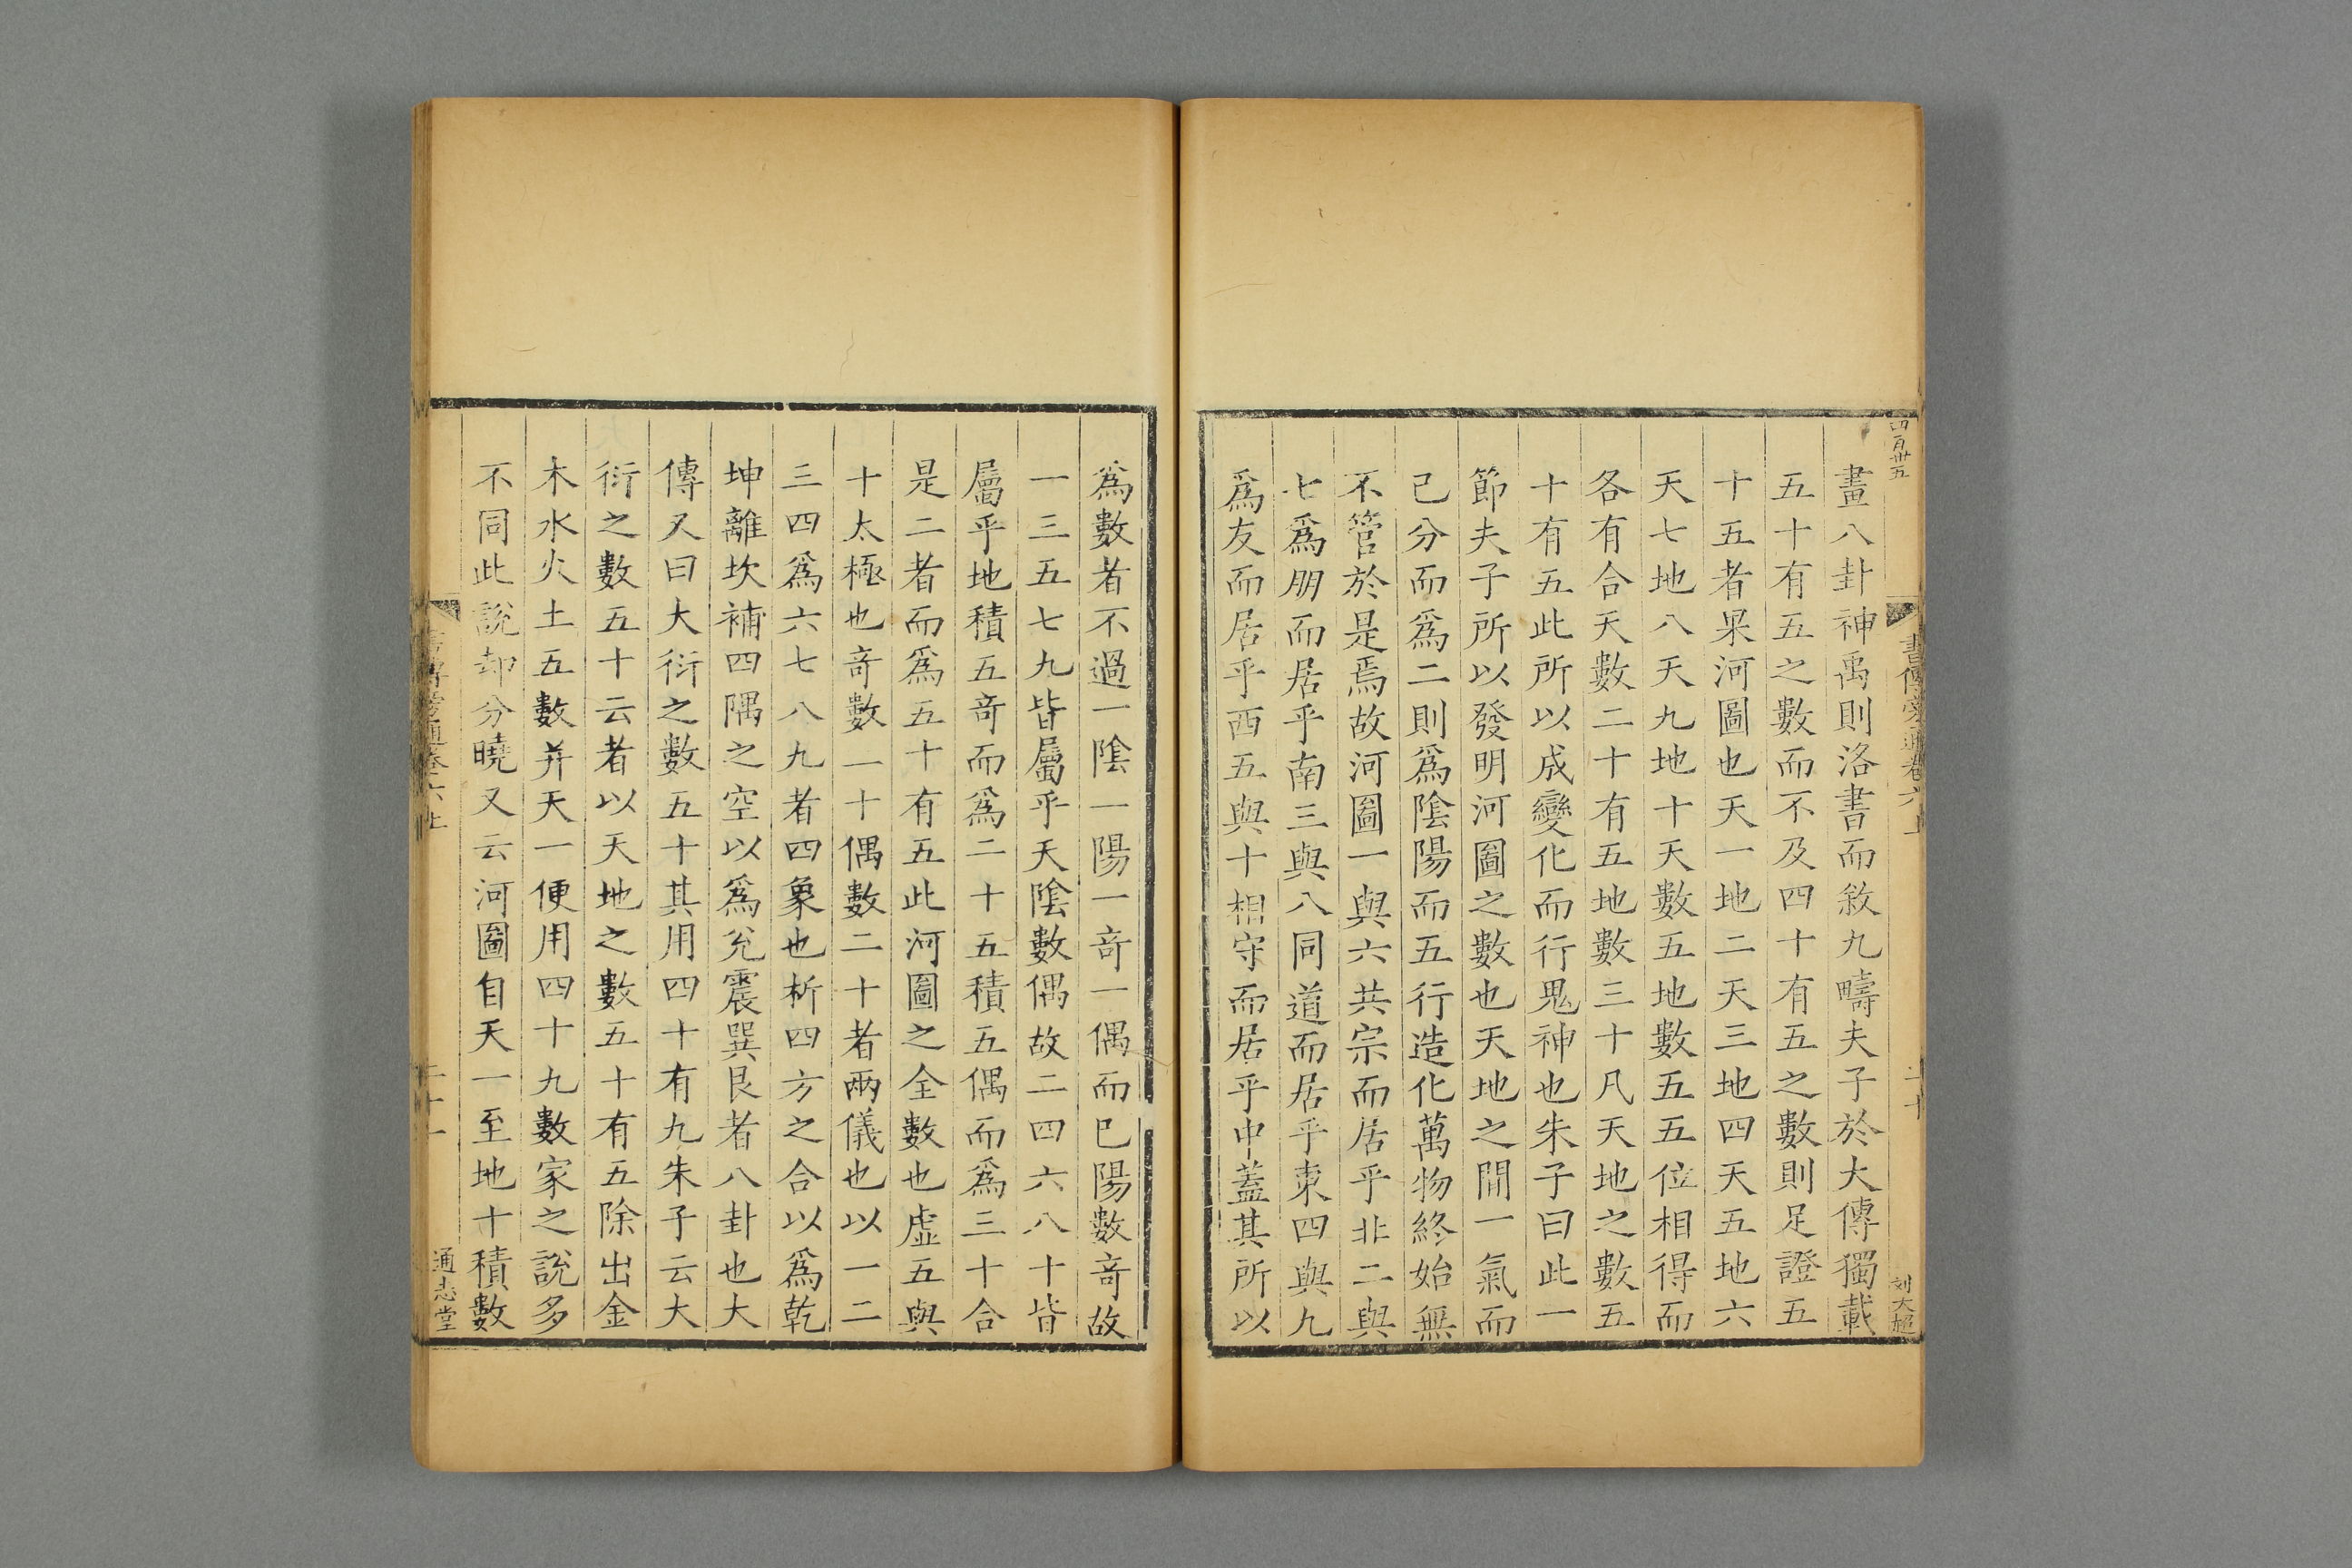 四百卅五
書傳旁通卷六上
二十
刘大超
畫八卦神禹則洛書而敘九疇夫子於大傳獨載
五十有五之數而不及四十有五之數則足證五
十五者果河圖也天一地二天三地四天五地六
天七地八天九地十天數五地數五五位相得而
各有合天數二十有五地數三十凡天地之數五
十有五此所以成變化而行鬼神也朱子曰此一
節夫子所以發明河圖之數也天地之間一氣而
己分而爲二則爲陰陽而五行造化萬物終始無
不管於是焉故河圖一與六共宗而居乎北二與
七爲朋而居乎南三與八同道而居乎東四與九
爲友而居乎西五與十相守而居乎中蓋其所以
爲數者不過一陰一陽一竒一偶而巳陽數竒故
一三五七九皆屬乎天陰數偶故二四六八十皆
屬乎地積五竒而爲二十五積五偶而爲三十合
是二者而爲五十有五此河圖之全數也虛五與
十太極也竒數一十偶數二十者兩儀也以一二
三四爲六七八九者四象也析四方之合以爲乾
坤離坎補四隅之空以爲兊震巽艮者八卦也大
傳又曰大衍之數五十其用四十有九朱子云大
衍之數五十云者以天地之數五十有五除出金
木水火土五數并天一便用四十九數家之說多
不同此說却分曉又云河圖自天一至地十積數
書傳旁通卷六上
二十一
通志堂